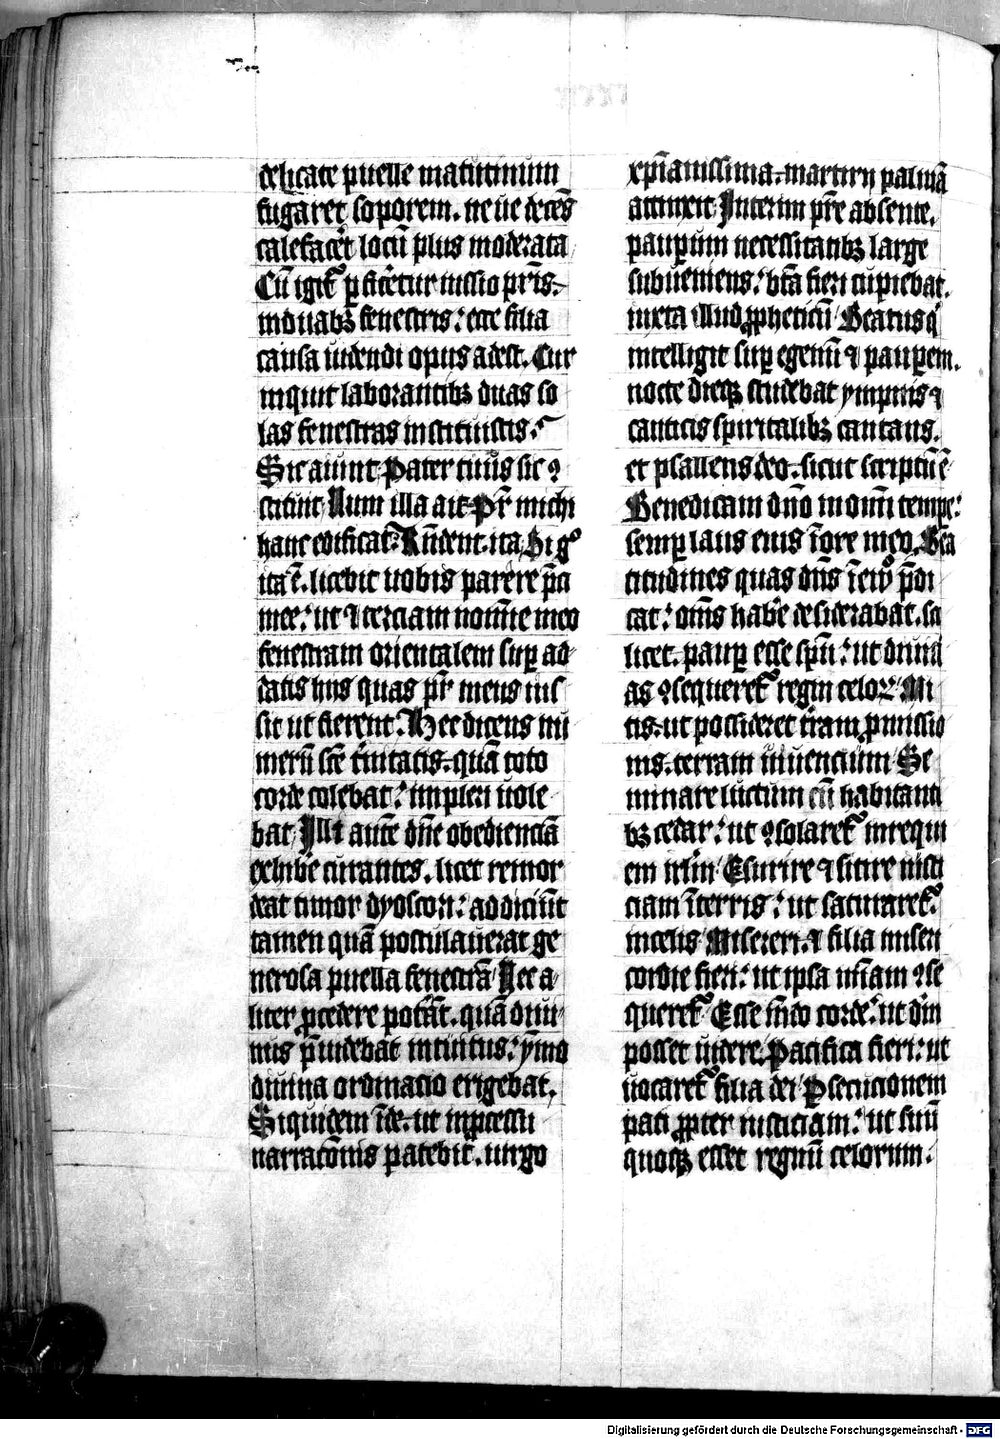 delicate puelle matutinum
fugaret soporem. neue decēs
calefacēt locū plus moderata
Cū igit᷑ ꝑficēretur iussio pr̄is.
induabꝫ fenestris: ecce filia
causa uidendi opus adest. Cur
inquit laborantibꝫ duas so
las fenestras instituistis.
Sic aiunt Pater tuus sic ꝯ
stituit. Num illa ait Pr̄ michi
hanc edificat: Rn̄dent. ita. Si gͦ
ita ē. licebit uobis parere p̄ci
mee: ut ⁊ terciam nom̄ie meo
fenestram orientalem suꝑ ad
datis hiis quas pr̄ meus ius
sit ut fierent. Hec dicens nu
merū sc̄e t̄nitatis. quā toto
corde colebat: impleri uole
bat. Illi autē dn̄e obedienciā
exhibē curantes. licet remor
deat timor dyoscori: addiciūt
tamen quā postulauerat ge
nerosa puella fenestrā. Nec a
liter ꝓcedere potāt. quā diui
nus p̄uidebat intuitus: ymo
diuina ordinacio erigebat.
Siquidem īde. ut inꝓcessu
narracōnis patebit. uirgo
xp̄ianissima. martirij palmā
attinxit Interim pr̄e absente.
pauꝑum necessitatibꝫ large
subueniens: bt̄a fieri cupiebat.
iuxta illud ꝓpheticū Beatus q̄
intelligit suꝑ egenū ⁊ pauꝑem.
nocte dieqꝫ studebat ympnis ⁊
canticis spiritalibꝫ cantans.
et psallens deo. sicut scriptū ē
Benedicam dn̄o in om̄i temꝑe:
semꝑ laus eius ī ore meo. Bea
titudines quas dn̄s ī ewͦ p̄di
cat: om̄s habē desiderabat. sci
licet. pauꝑ esse spū: ut diuini
as ꝯsequeret᷑ regni celoꝝ. Mi
tis. ut possideret t̄ram ꝓmissio
nis. terram uiuencium Se
minare luctum cū habitanti
bꝫ cedar: ut ꝯsolaret᷑ in requi
em irl̄m Esurire ⁊ sitire iusti
ciam ī terris: ut saturaret᷑
in celis Misereri. ⁊ filia miseri
cordie fieri: ut ipsa ueniam ꝯse
queret᷑ Esse mūdo corde: ut dm̄
posset uidere. Pacifica fieri: ut
uocaret᷑ filia dei Ꝑsecucionem
pati ꝓpter iusticiam: ut suū
quoqꝫ esset regnū celorum:
Digitalisierung gefördert durch die Deutsche Forschungsgemeinschaft - DFG